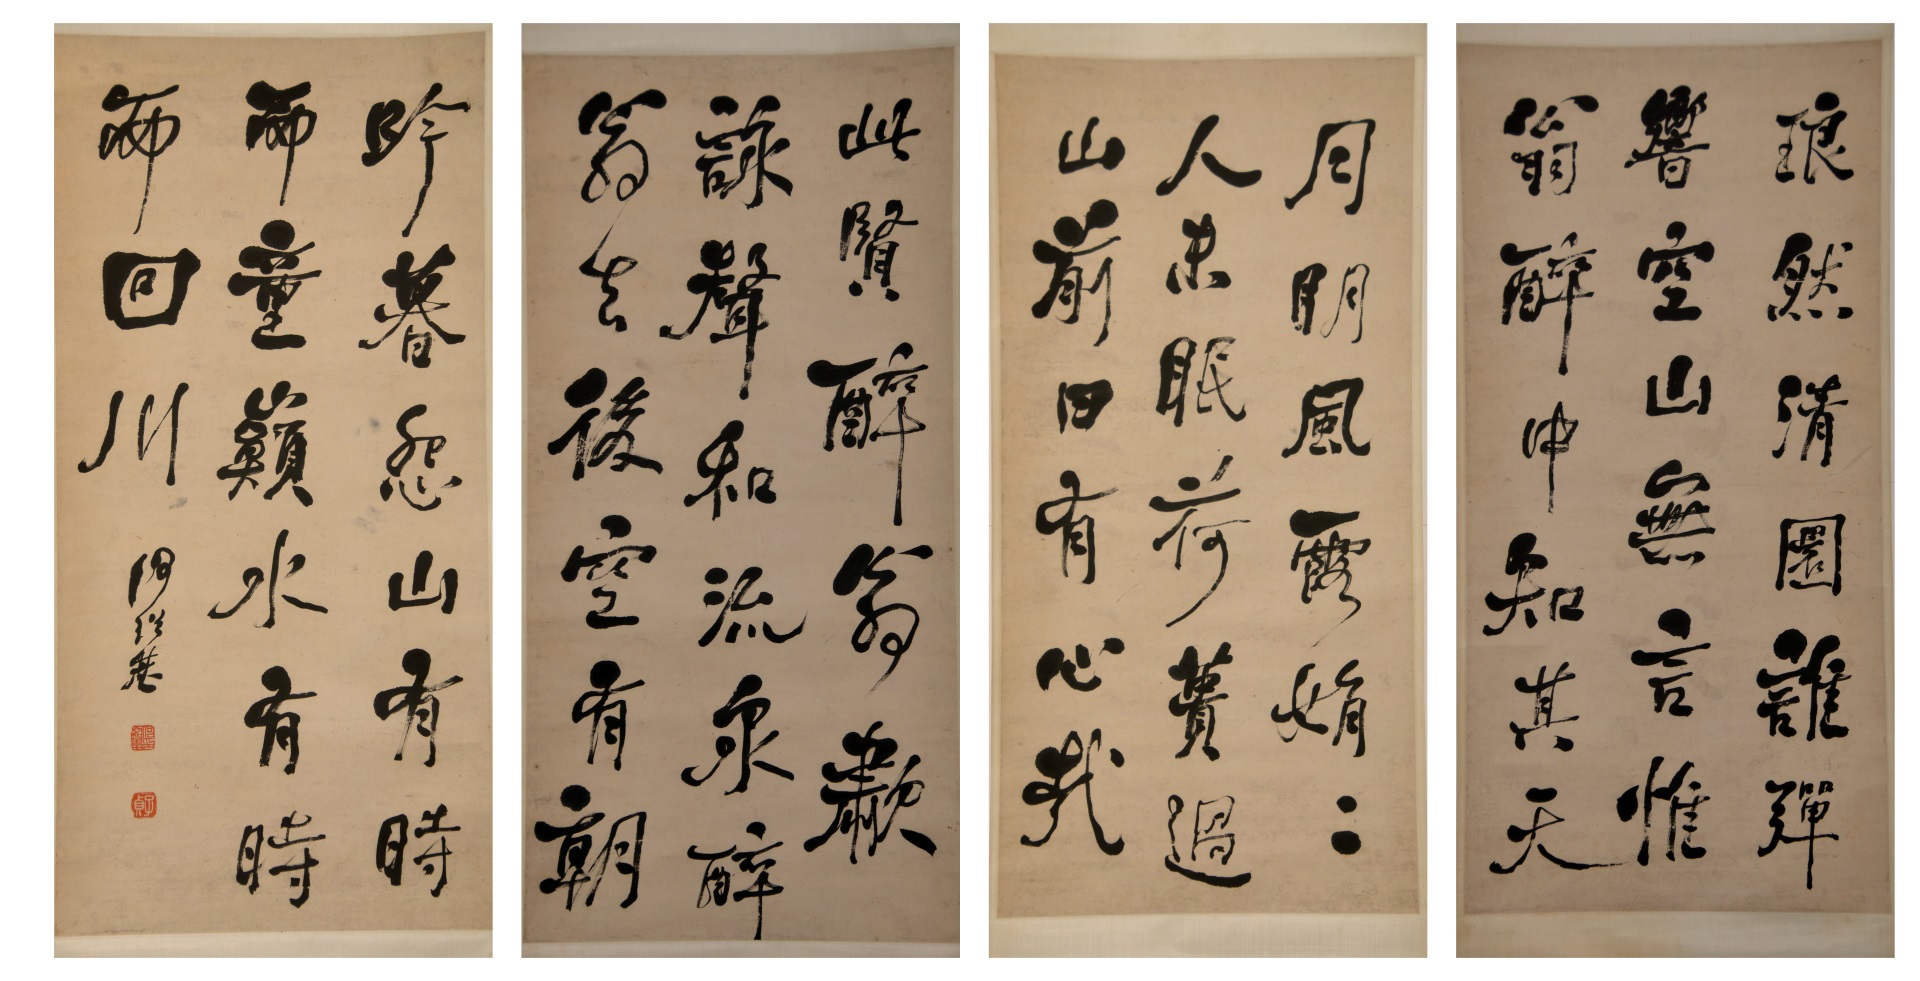 琅然清圜誰彈
響空山無言惟
翁醉中知其天
月明風露娟〻
人未眠荷蕢過
山前曰有心哉
此賢醉翁歗
詠聲和流泉醉
翁去後空有朝
吟暮怨山有時
而童巔水有時
而回川
何紹基
子貞